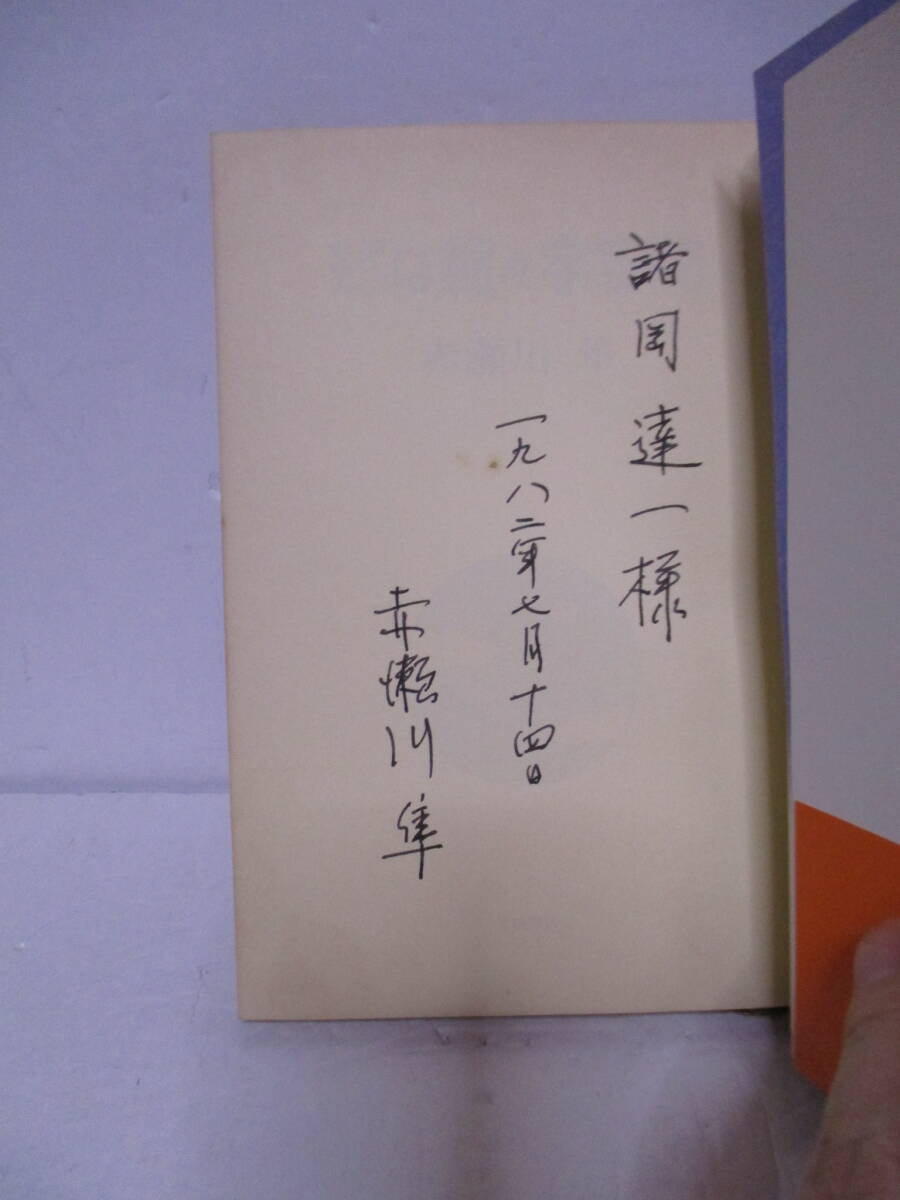 諸岡達一様
一九八二年七月十四日
赤瀬川隼